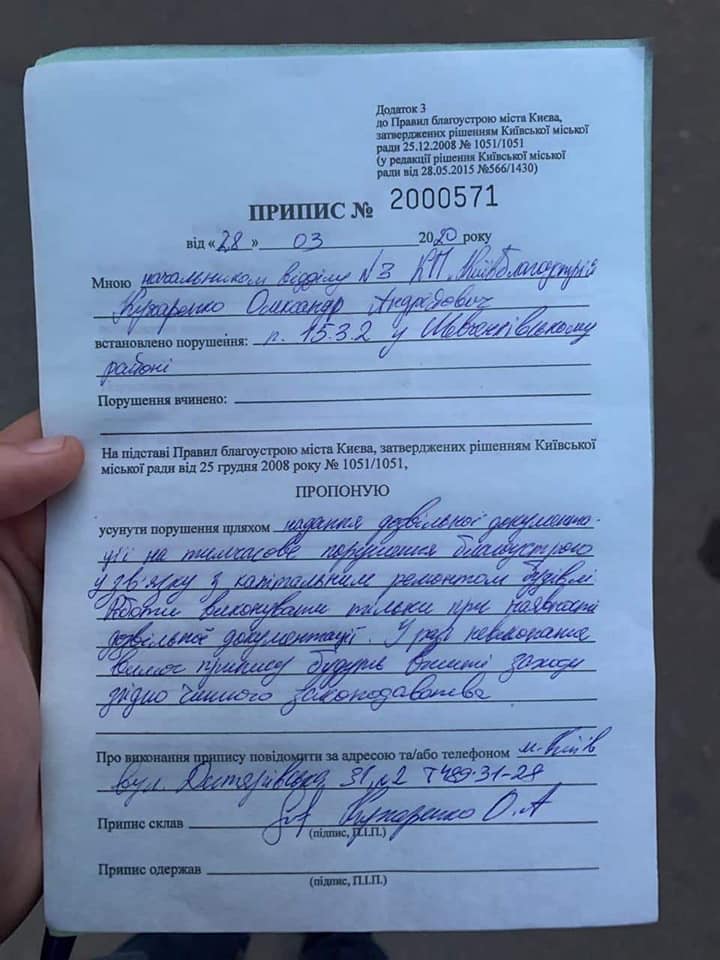 Додаток 3
до Правил благоустрою міста Києва,
затверджених рішенням Київської міської
ради 25.12.2008 № 1051/1051
(у редакції рішення Київської міської
ради від 28.05.2015 №566/1430)
ПРИПИС № 2000571
від «28» 03 2020 року
Мною начальником відділу №3 КП "Київблагоустрій
Олександр Андрійович
встановлено порушення: п. 15.3.2 у Шевченківському
районі
Порушення вчинено:
На підставі Правил благоустрою міста Києва, затверджених рішенням Київської
міської ради від 25 грудня 2008 року № 1051/1051,
ПРОПОНУЮ
усунути порушення щляхом надання дозвільної документа-
ції на тимчасове порушення благоустрою
у зв'язку з капітальним ремонтом будівлі
Роботи виконувати тільки при наявності
дозвільної документації. У разі невиконання
вимог припису будуть вжиті заходи
згідно чинного законодавства
Про виконання припису повідомити за адресою та/або телефоном м. Київ
вул. Дегтярівська 31 к2 т 489-31-28
Припис склав О.А
(підпис, П.І.П.)
Припис одержав
(підпис, П.І.П.)